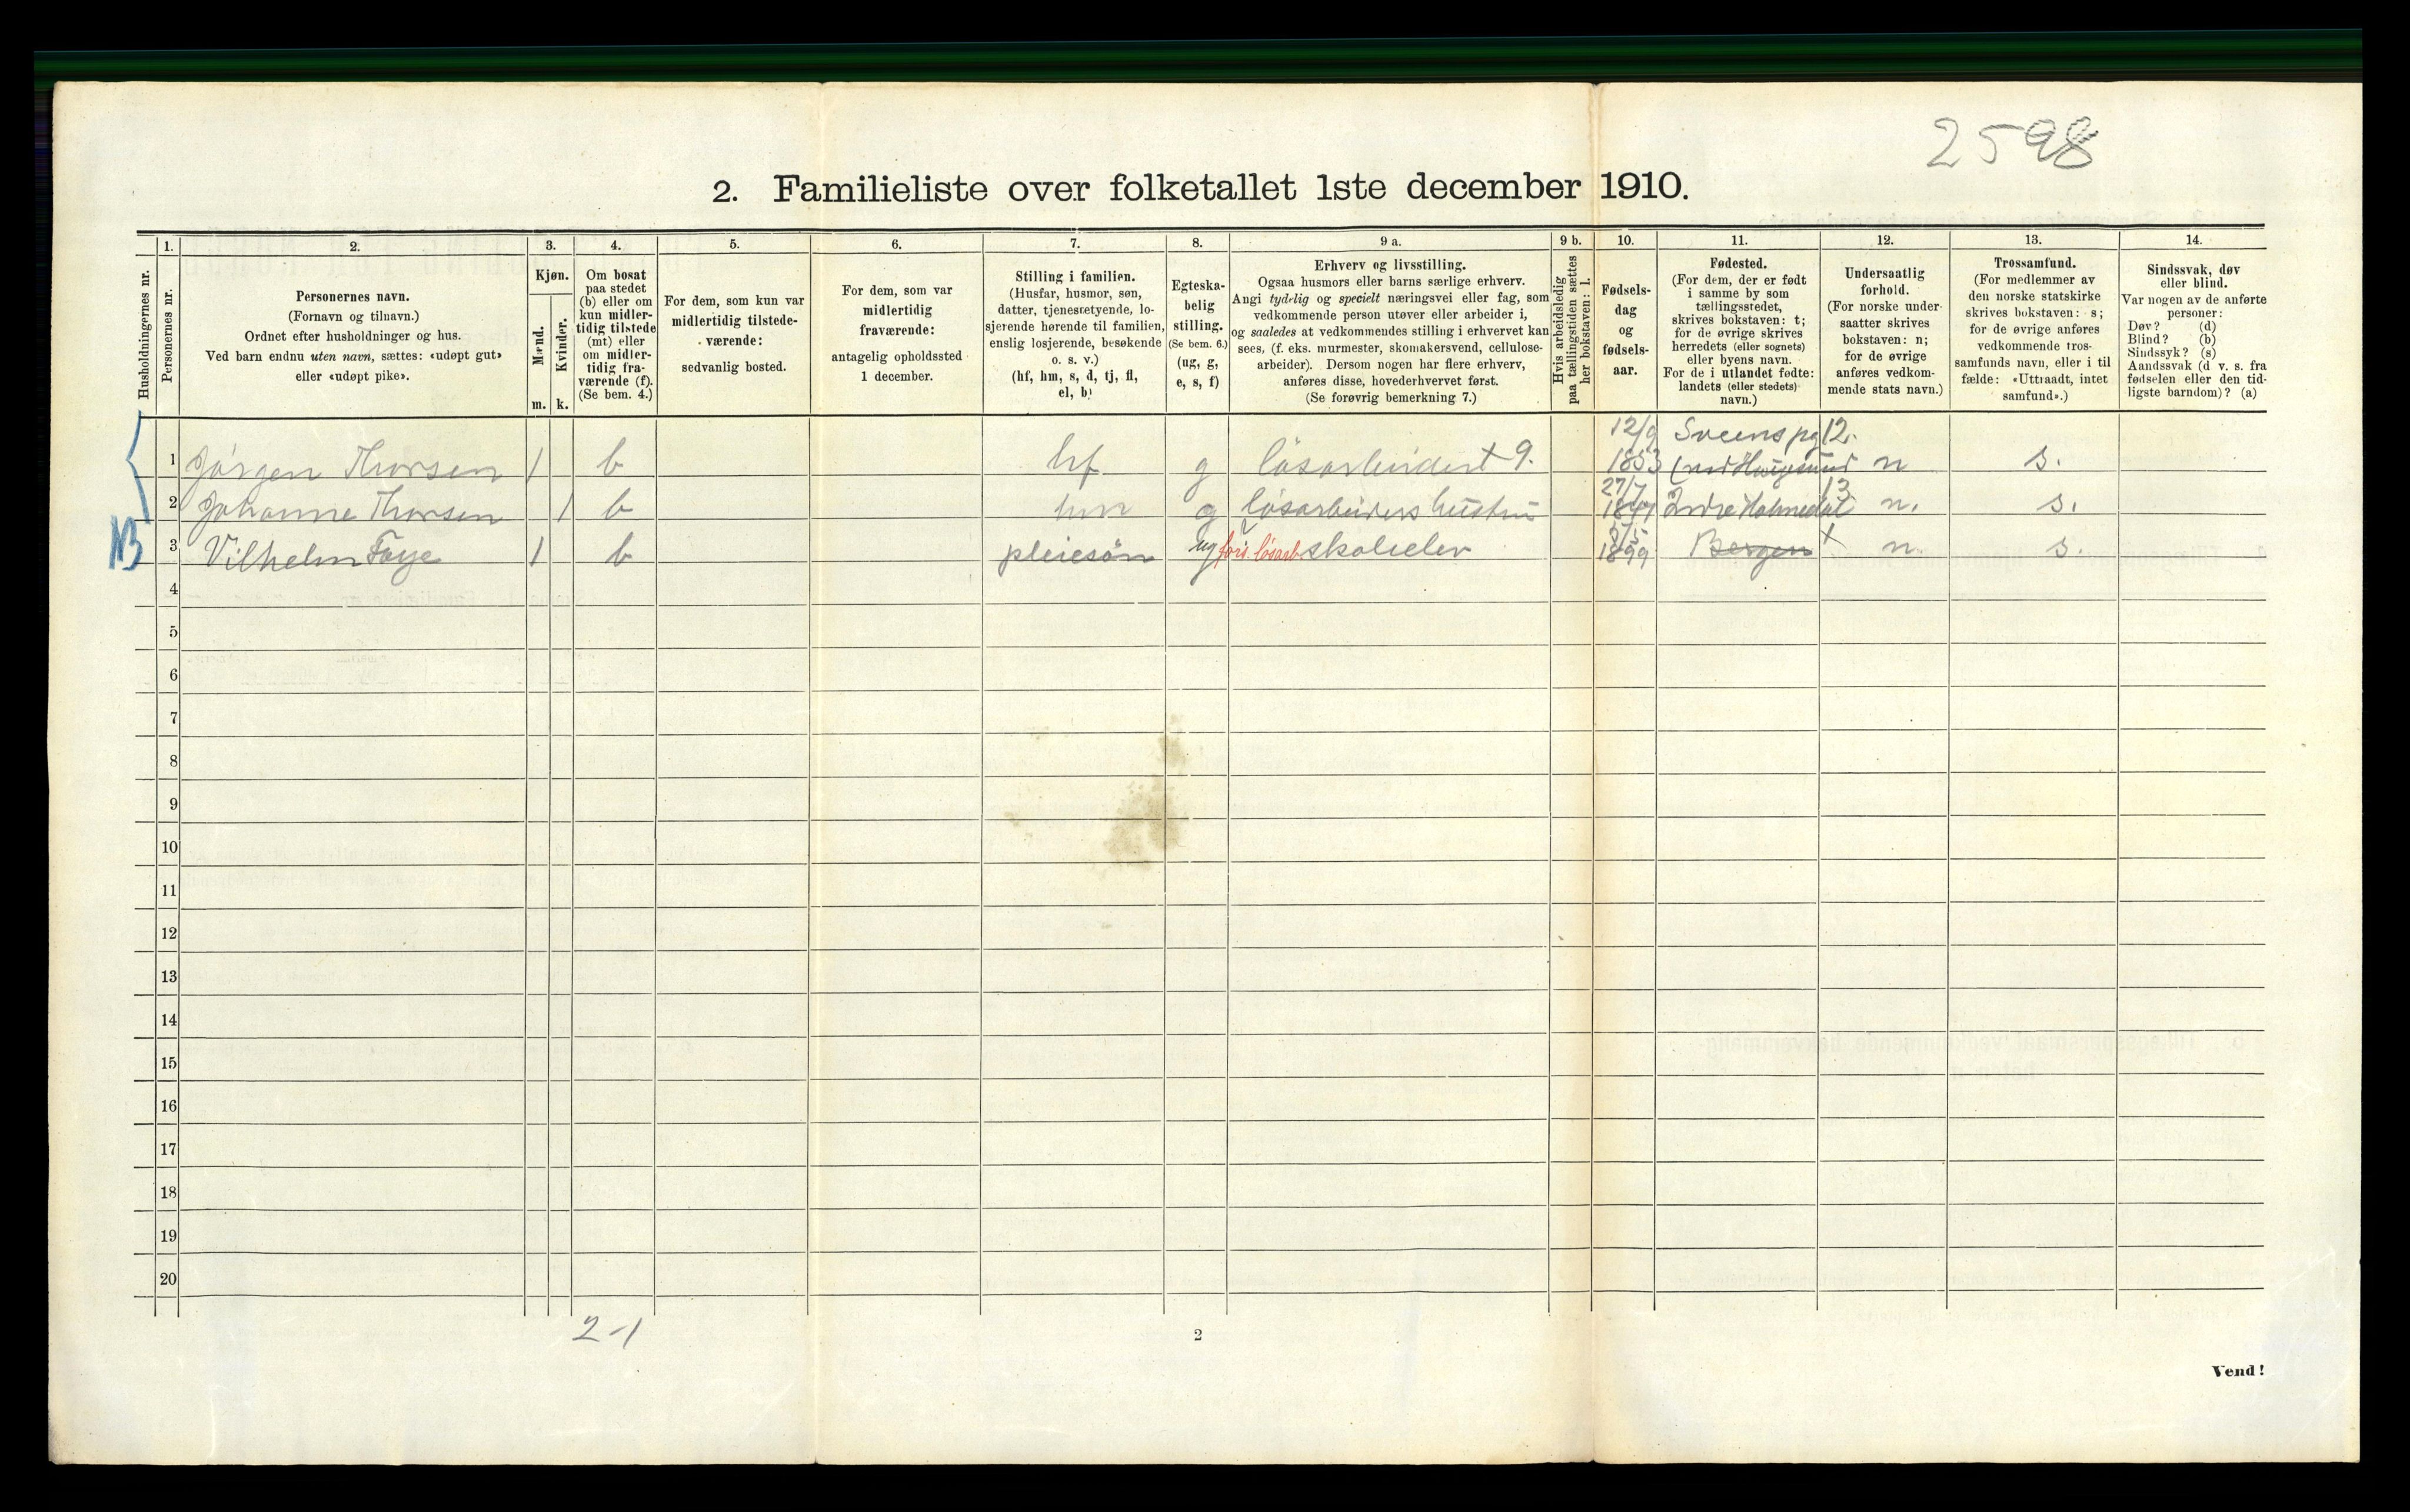 2598
2. Familieliste over folketallet 1ste december 1910.
Husholdningernes nr.
1. Personernes nr.
2. Personernes navn.
(Fornavn og tilnavn.)
Ordnet efter husholdninger og hus.
Ved barn endnu uten navn, sættes: «udøpt gut»
eller «udøpt pike».
3. Kjøn.
Mænd. m.
Kvinder. k.
4. Om bosat
paa stedet
(b) eller om
kun midler-
tidig tilstede
(mt) eller
om midler-
tidig fra-
værende (f).
(Se bem. 4.)
5. For dem, som kun var
midlertidig tilstede-
værende:
sedvanlig bosted.
6. For dem, som var
midlertidig
fraværende:
antagelig opholdssted
1 december.
7. Stilling i familien.
(Husfar, husmor, søn,
datter, tjenestetyende, lo-
sjerende hørende til familien,
enslig losjerende, besøkende
o. s. v.)
(hf, hm, s, d, tj, fl,
el, b)
8. Egteska-
belig
stilling.
(Se bem. 6.)
(ug, g,
e, s, f)
9 a. Erhverv og livsstilling.
Ogsaa husmors eller barns særlige erhverv.
Angi tydelig og specielt næringsvei eller fag, som
vedkommende person utøver eller arbeider i,
og saaledes at vedkommendes stilling i erhvervet kan
sees, (f. eks. murmester, skomakersvend, cellulose-
arbeider). Dersom nogen har flere erhverv,
anføres disse, hovederhvervet først.
(Se forøvrig bemerkning 7.)
9 b. Hvis arbeidsledig
paa tællingstiden sættes
her bokstaven: l.
10. Fødsels-
dag
og
fødsels-
aar.
11. Fødested.
(For dem, der er født
i samme by som
tællingsstedet,
skrives bokstaven: t;
for de øvrige skrives
herredets (eller sognets)
eller byens navn.
For de i utlandet fødte:
landets (eller stedets)
navn.)
12. Undersaatlig
forhold.
(For norske under-
saatter skrives
bokstaven: n;
for de øvrige
anføres vedkom-
mende stats navn.)
13. Trossamfund.
(For medlemmer av
den norske statskirke
skrives bokstaven: s;
for de øvrige anføres
vedkommende tros-
samfunds navn, eller i til
fælde: «Uttraadt, intet
samfund».)
14. Sindssvak, døv
eller blind.
Var nogen av de anførte
personer:
Døv? (d)
Blind? (b)
Sindssyk? (s)
Aandssvak (d v. s. fra
fødselen eller den tid-
ligste barndom)? (a)
1 Jørgen Thorsen 1 b hf g løsarbeider t 9. 12/9 1853 Sveens pg 12. n s.
2 Johanne Thorsen 1 b hm g løsarbeiders hustru 27/7 Indre Holmedal 13 n. s.
NB 3 Vilhelm Faye 1 b pleiesøn ug fors. løsarb skoleelev 1899 Bergen t n. s.
4
5
6
7
8
9
10
11
12
13
14
15
16
17
18
19
20
2-1
2
Vend!